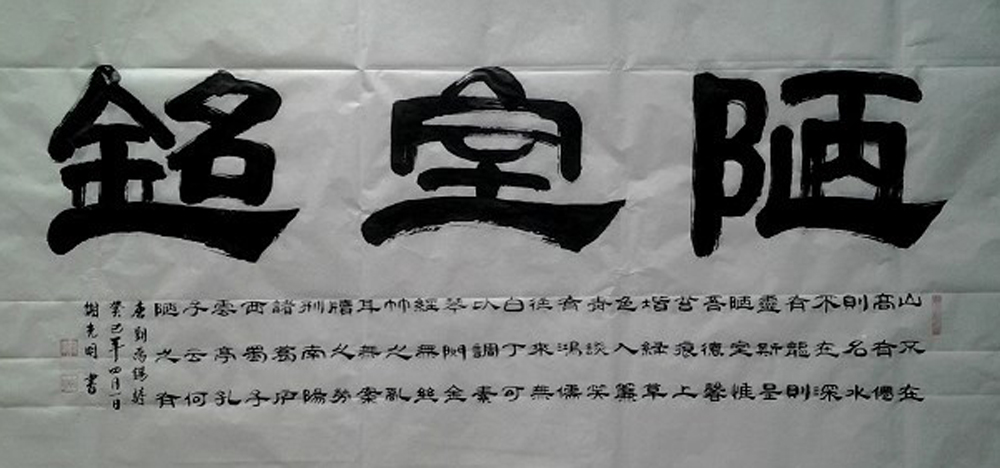 陋室銘
山不在
高有僊
則名水
不在深
有龍則
靈斯是
陋室惟
吾德馨
苔痕上
堦緑草
色入簾
青談笑
有鴻儒
往來無
白丁可
以調素
琴閱金
經無絲
竹之亂
耳無案
牘之勞
形南陽
諸葛庐
西蜀子
雲亭孔
子云何
陋之有
唐劉禹錫
癸巳年四月一日
謝光明書